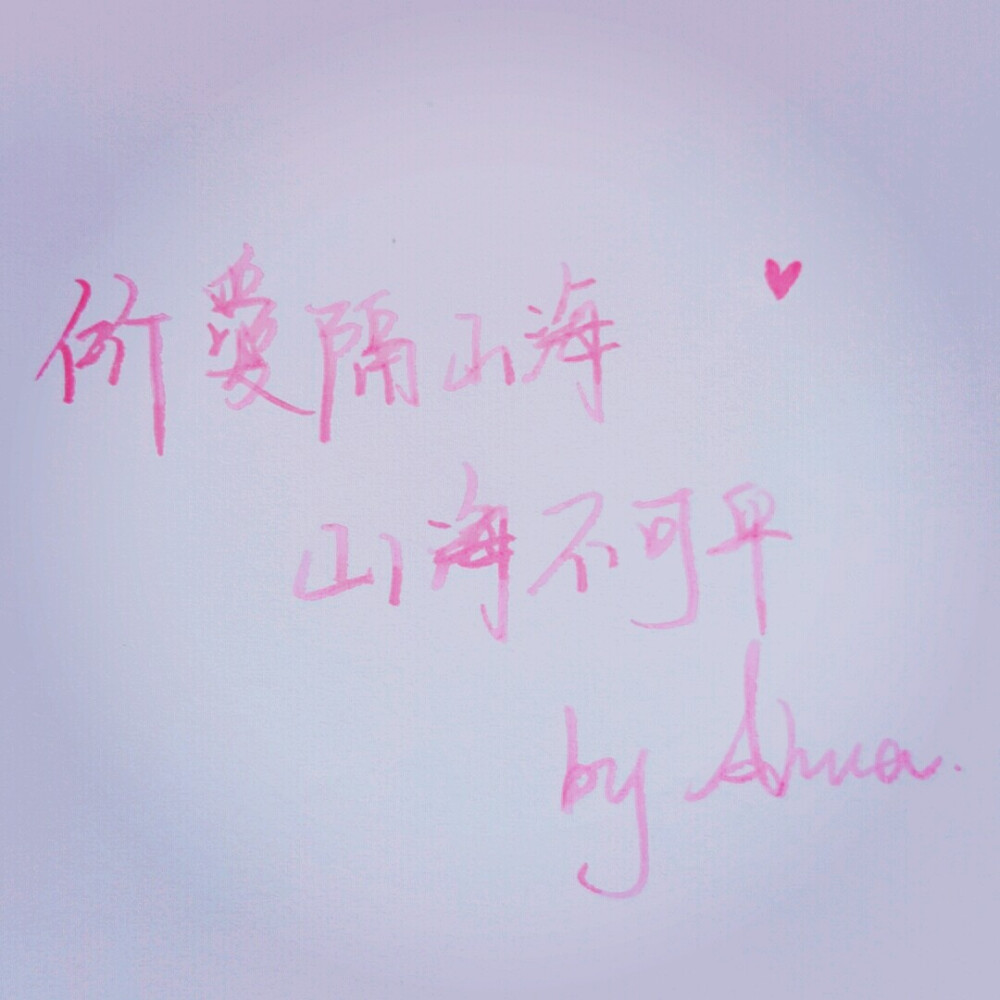 所愛隔山海
山海不可平
by Ahua.